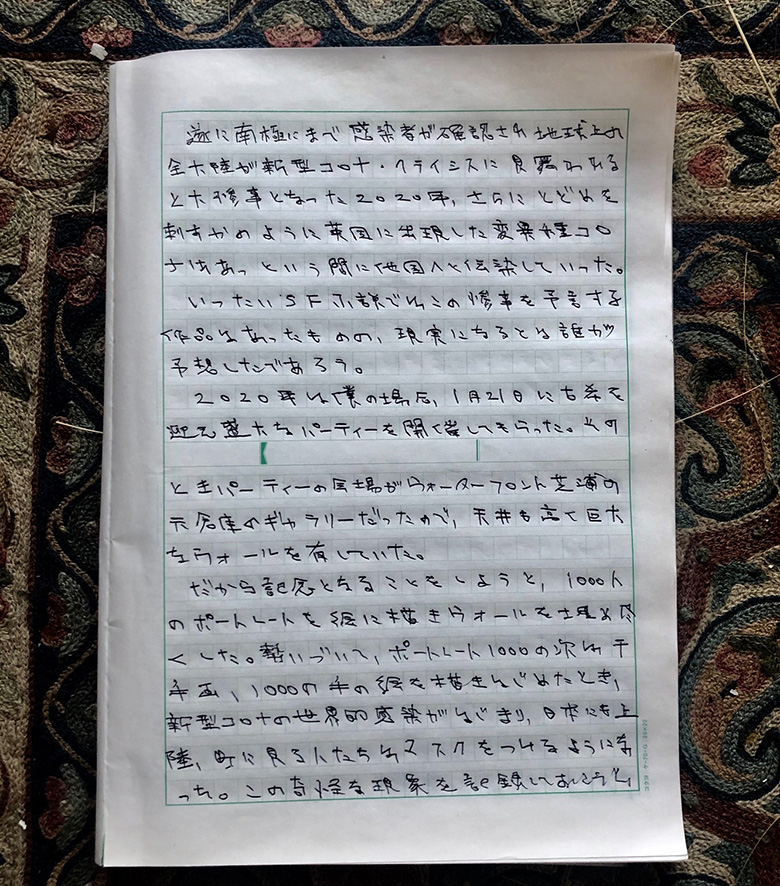 遂に南極にまで感染者が確認され地球上の
全大陸が新型コロナ・クライシスに見舞われる
と大惨事となった2020年、さらにとどめを
刺すかのように英国に出現した変異種コロ
ナはあっという間に他国へと伝染していった。
いったいSF小説ではこの惨事を予言する
作品はあったものの、現実になるとは誰が
予想したであろう。
2020年は僕の場合、1月21日に古希を
迎え盛大なパーティーを開催してもらった。その
ときパーティーの会場がウォーターフロント芝浦の
元倉庫のギャラリーだったので、天井も高く巨大
なウォールを有していた。
だから記念となることをしようと、1000人
のポートレートを絵に描きウォールを埋め尽
くした。勢いづいて、ポートレート1000の次は千
手画、1000の手の絵を描きはじめたとき、
新型コロナの世界的感染がはじまり、日本にも上
陸、町に見る人たちはマスクをつけるようにな
った。この奇怪な現象を記録しておこうと、